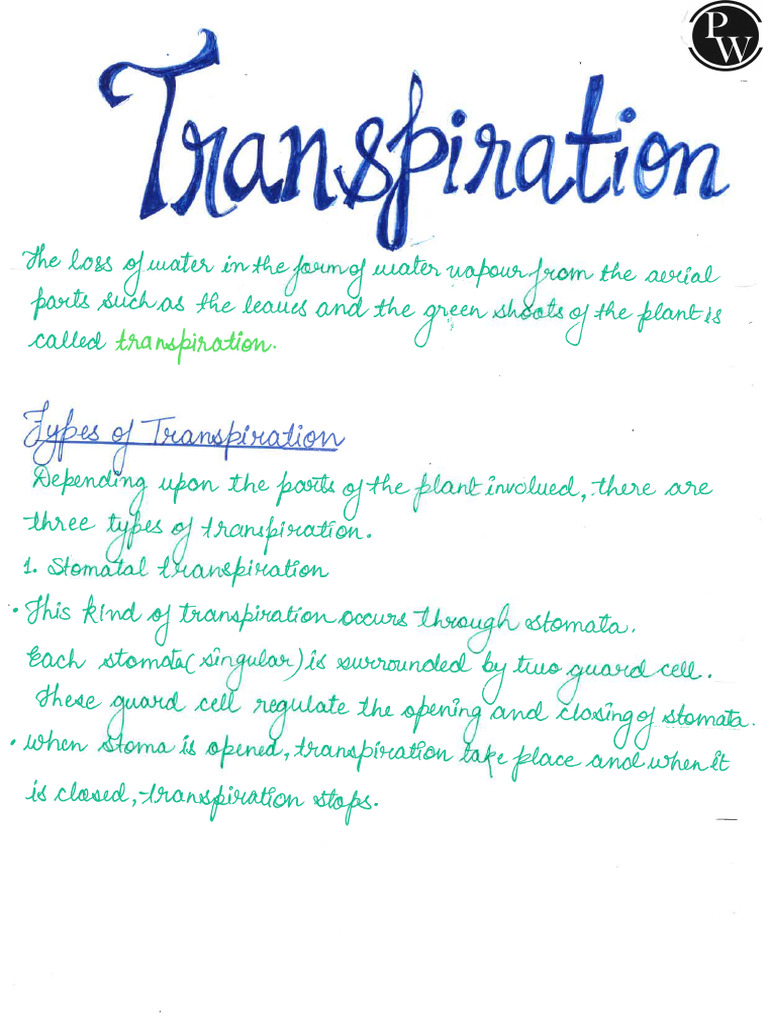 PW
Transpiration
The loss of water in the form of water vapour from the aerial
parts such as the leaves and the green shoots of the plant is
called transpiration.
Types of Transpiration
Depending upon the parts of the plant involved, there are
three types of transpiration.
1. Stomatal transpiration
• This kind of transpiration occurs through stomata.
Each stomata(singular) is surrounded by two guard cell.
These guard cell regulate the opening and closing of stomata.
• When stoma is opened, transpiration take place and when it
is closed, transpiration stops.